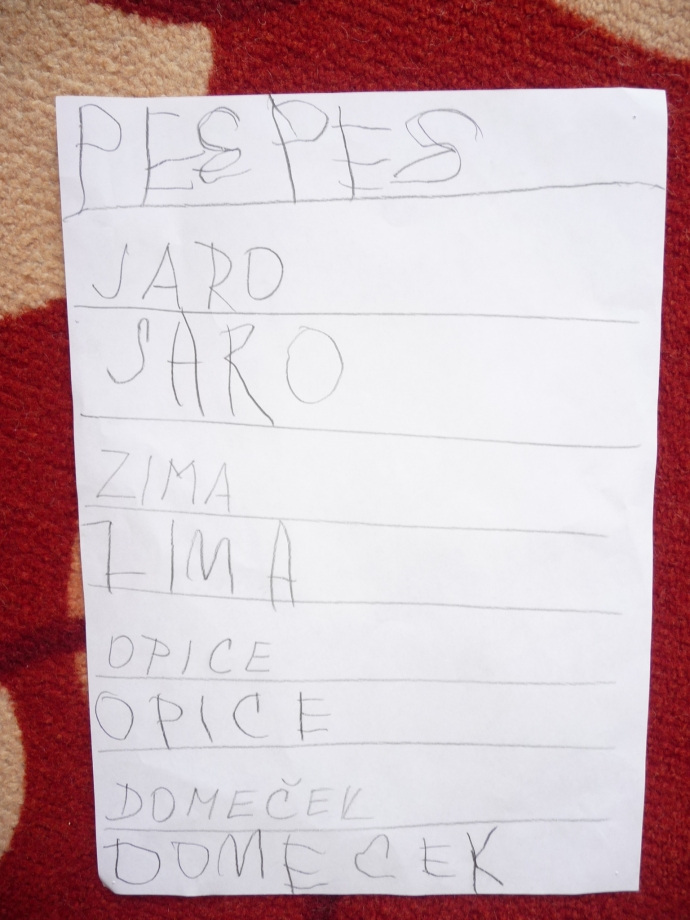 PES PES
JARO
JARO
ZIMA
ZIMA
OPICE
OPICE
DOMEČEK
DOMECEK